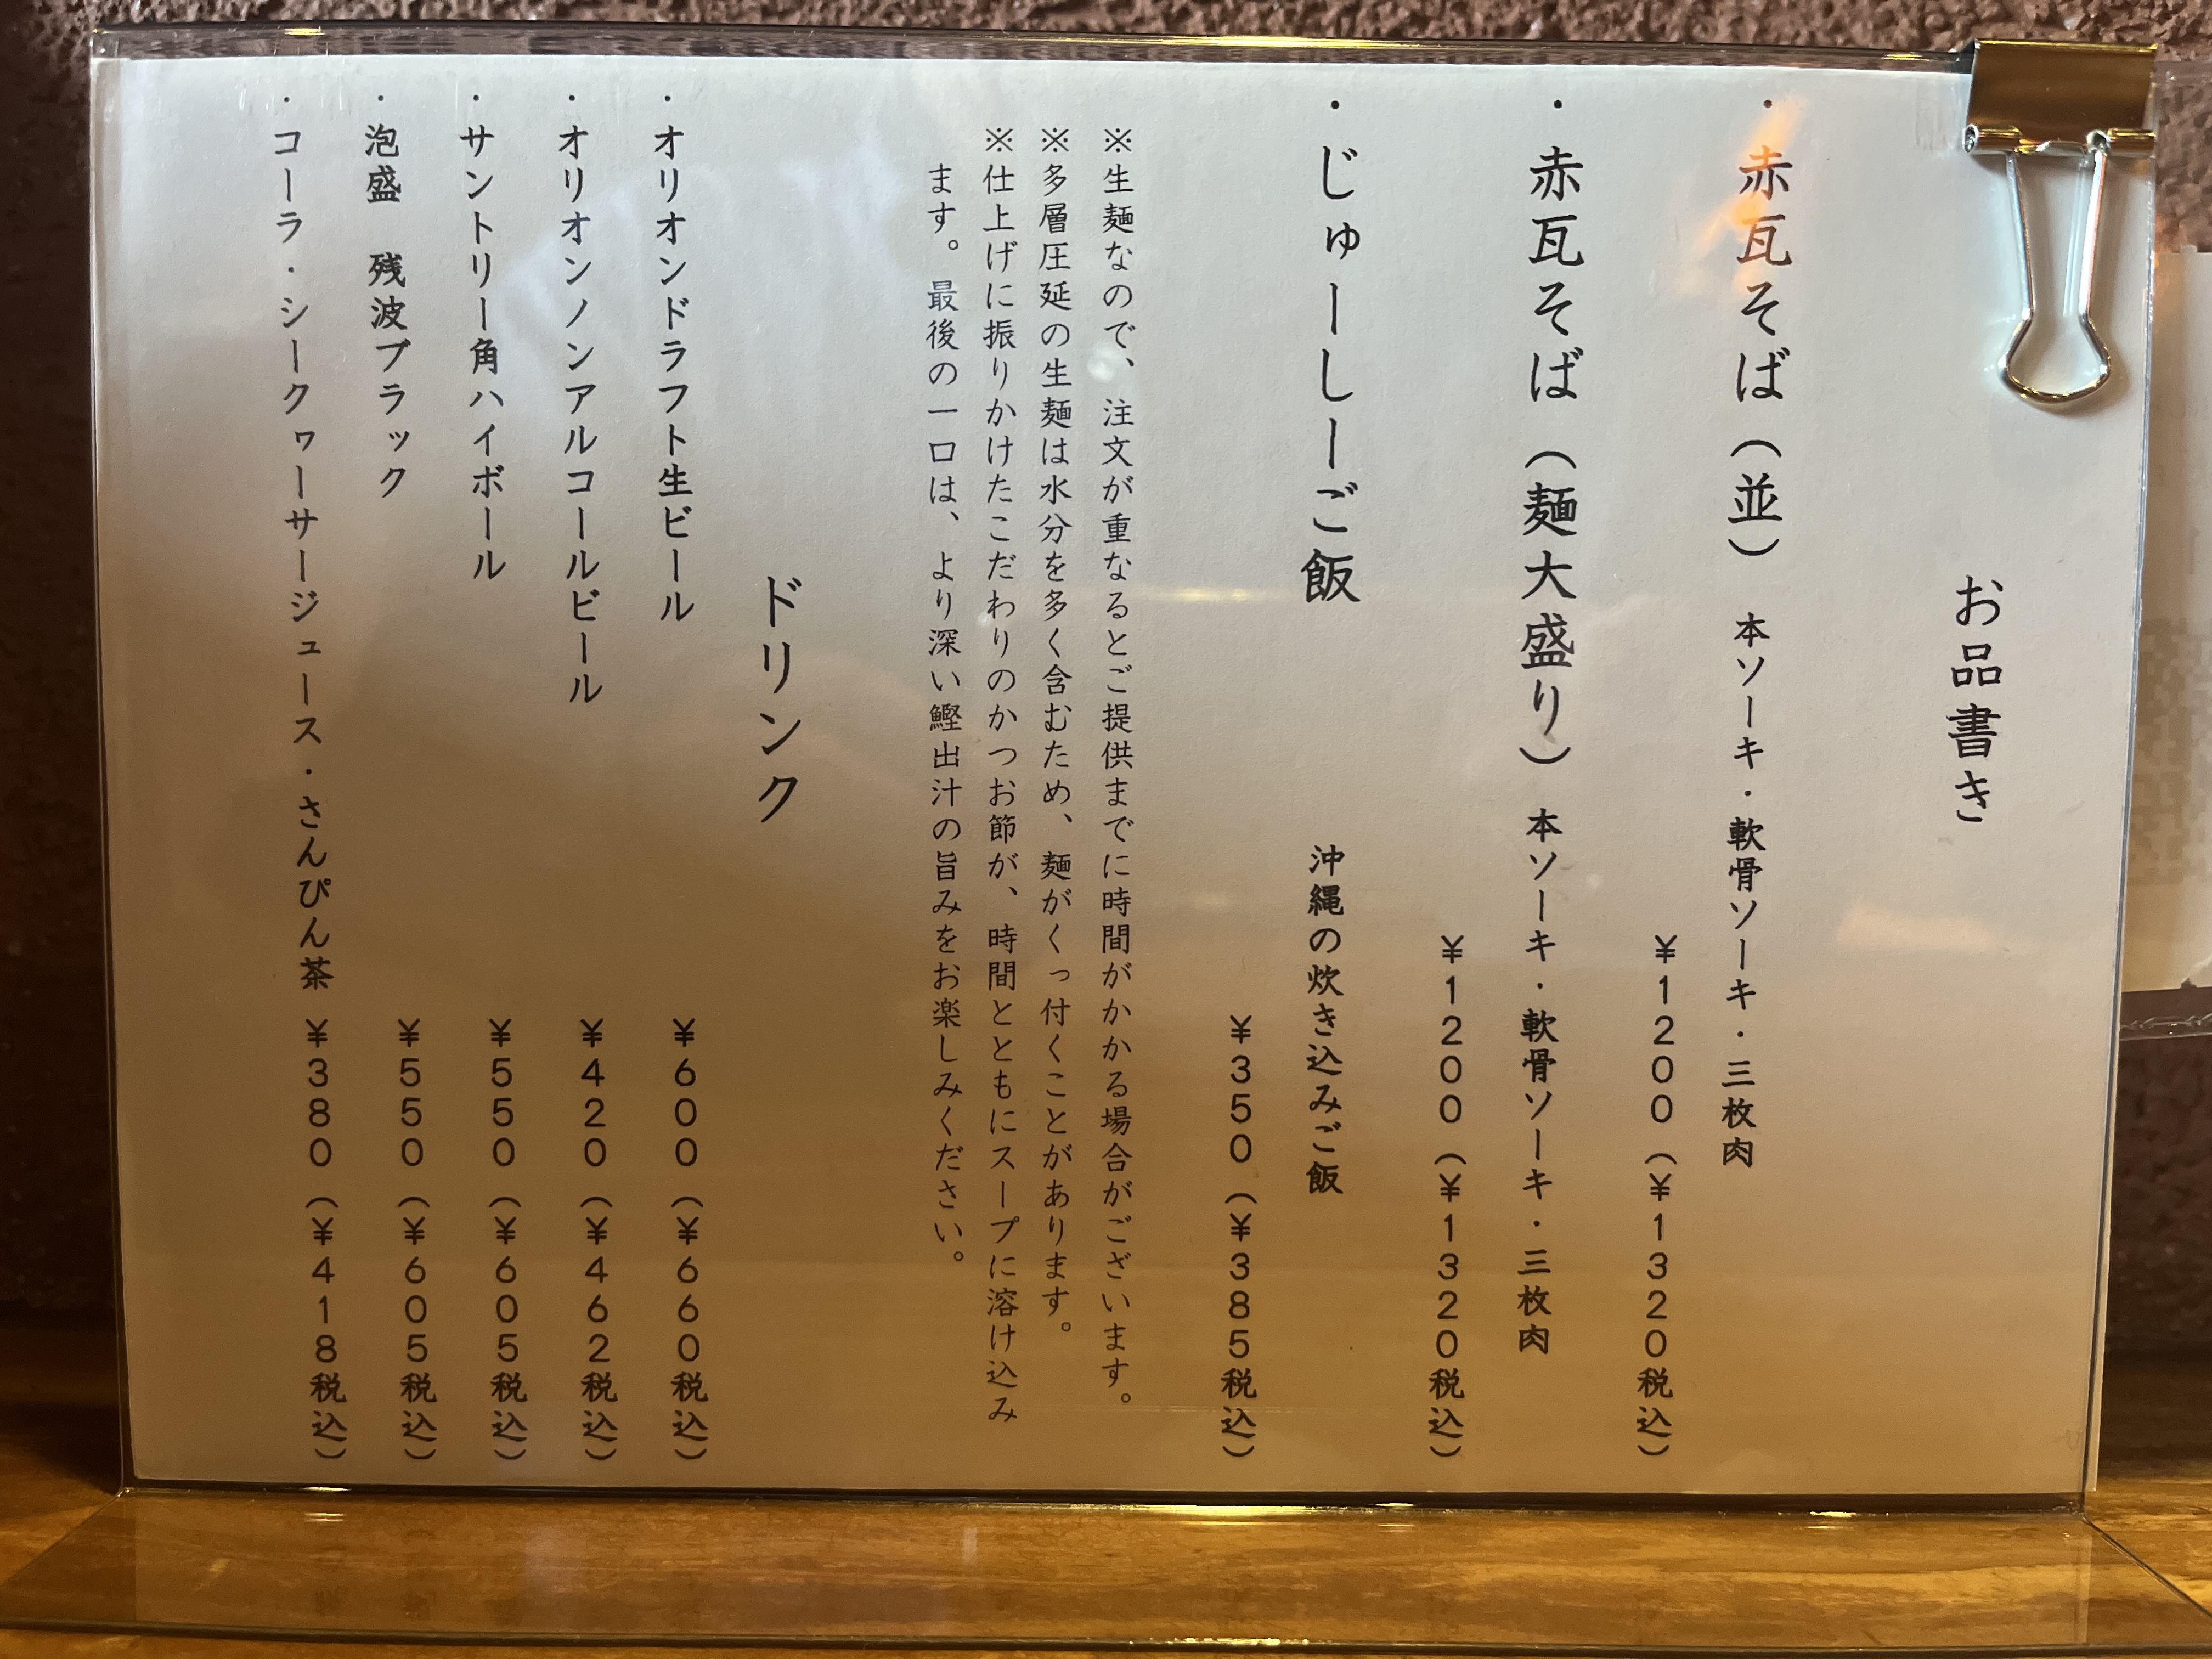 お品書き
・赤瓦そば（並）　本ソーキ・軟骨ソーキ・三枚肉
￥1200（￥1320税込）
・赤瓦そば（麺大盛り）　本ソーキ・軟骨ソーキ・三枚肉
￥1200（￥1320税込）
・じゅーしーご飯　沖縄の炊き込みご飯
￥350（￥385税込）
※生麺なので、注文が重なるとご提供までに時間がかかる場合がございます。
※多層圧延の生麺は水分を多く含むため、麺がくっ付くことがあります。
※仕上げに振りかけたこだわりのかつお節が、時間とともにスープに溶け込み
ます。最後の一口は、より深い鰹出汁の旨みをお楽しみください。
ドリンク
・オリオンドラフト生ビール　￥600（￥660税込）
・オリオンノンアルコールビール　￥420（￥462税込）
・サントリー角ハイボール　￥550（￥605税込）
・泡盛　残波ブラック　￥550（￥605税込）
・コーラ・シークヮーサージュース・さんぴん茶　￥380（￥418税込）